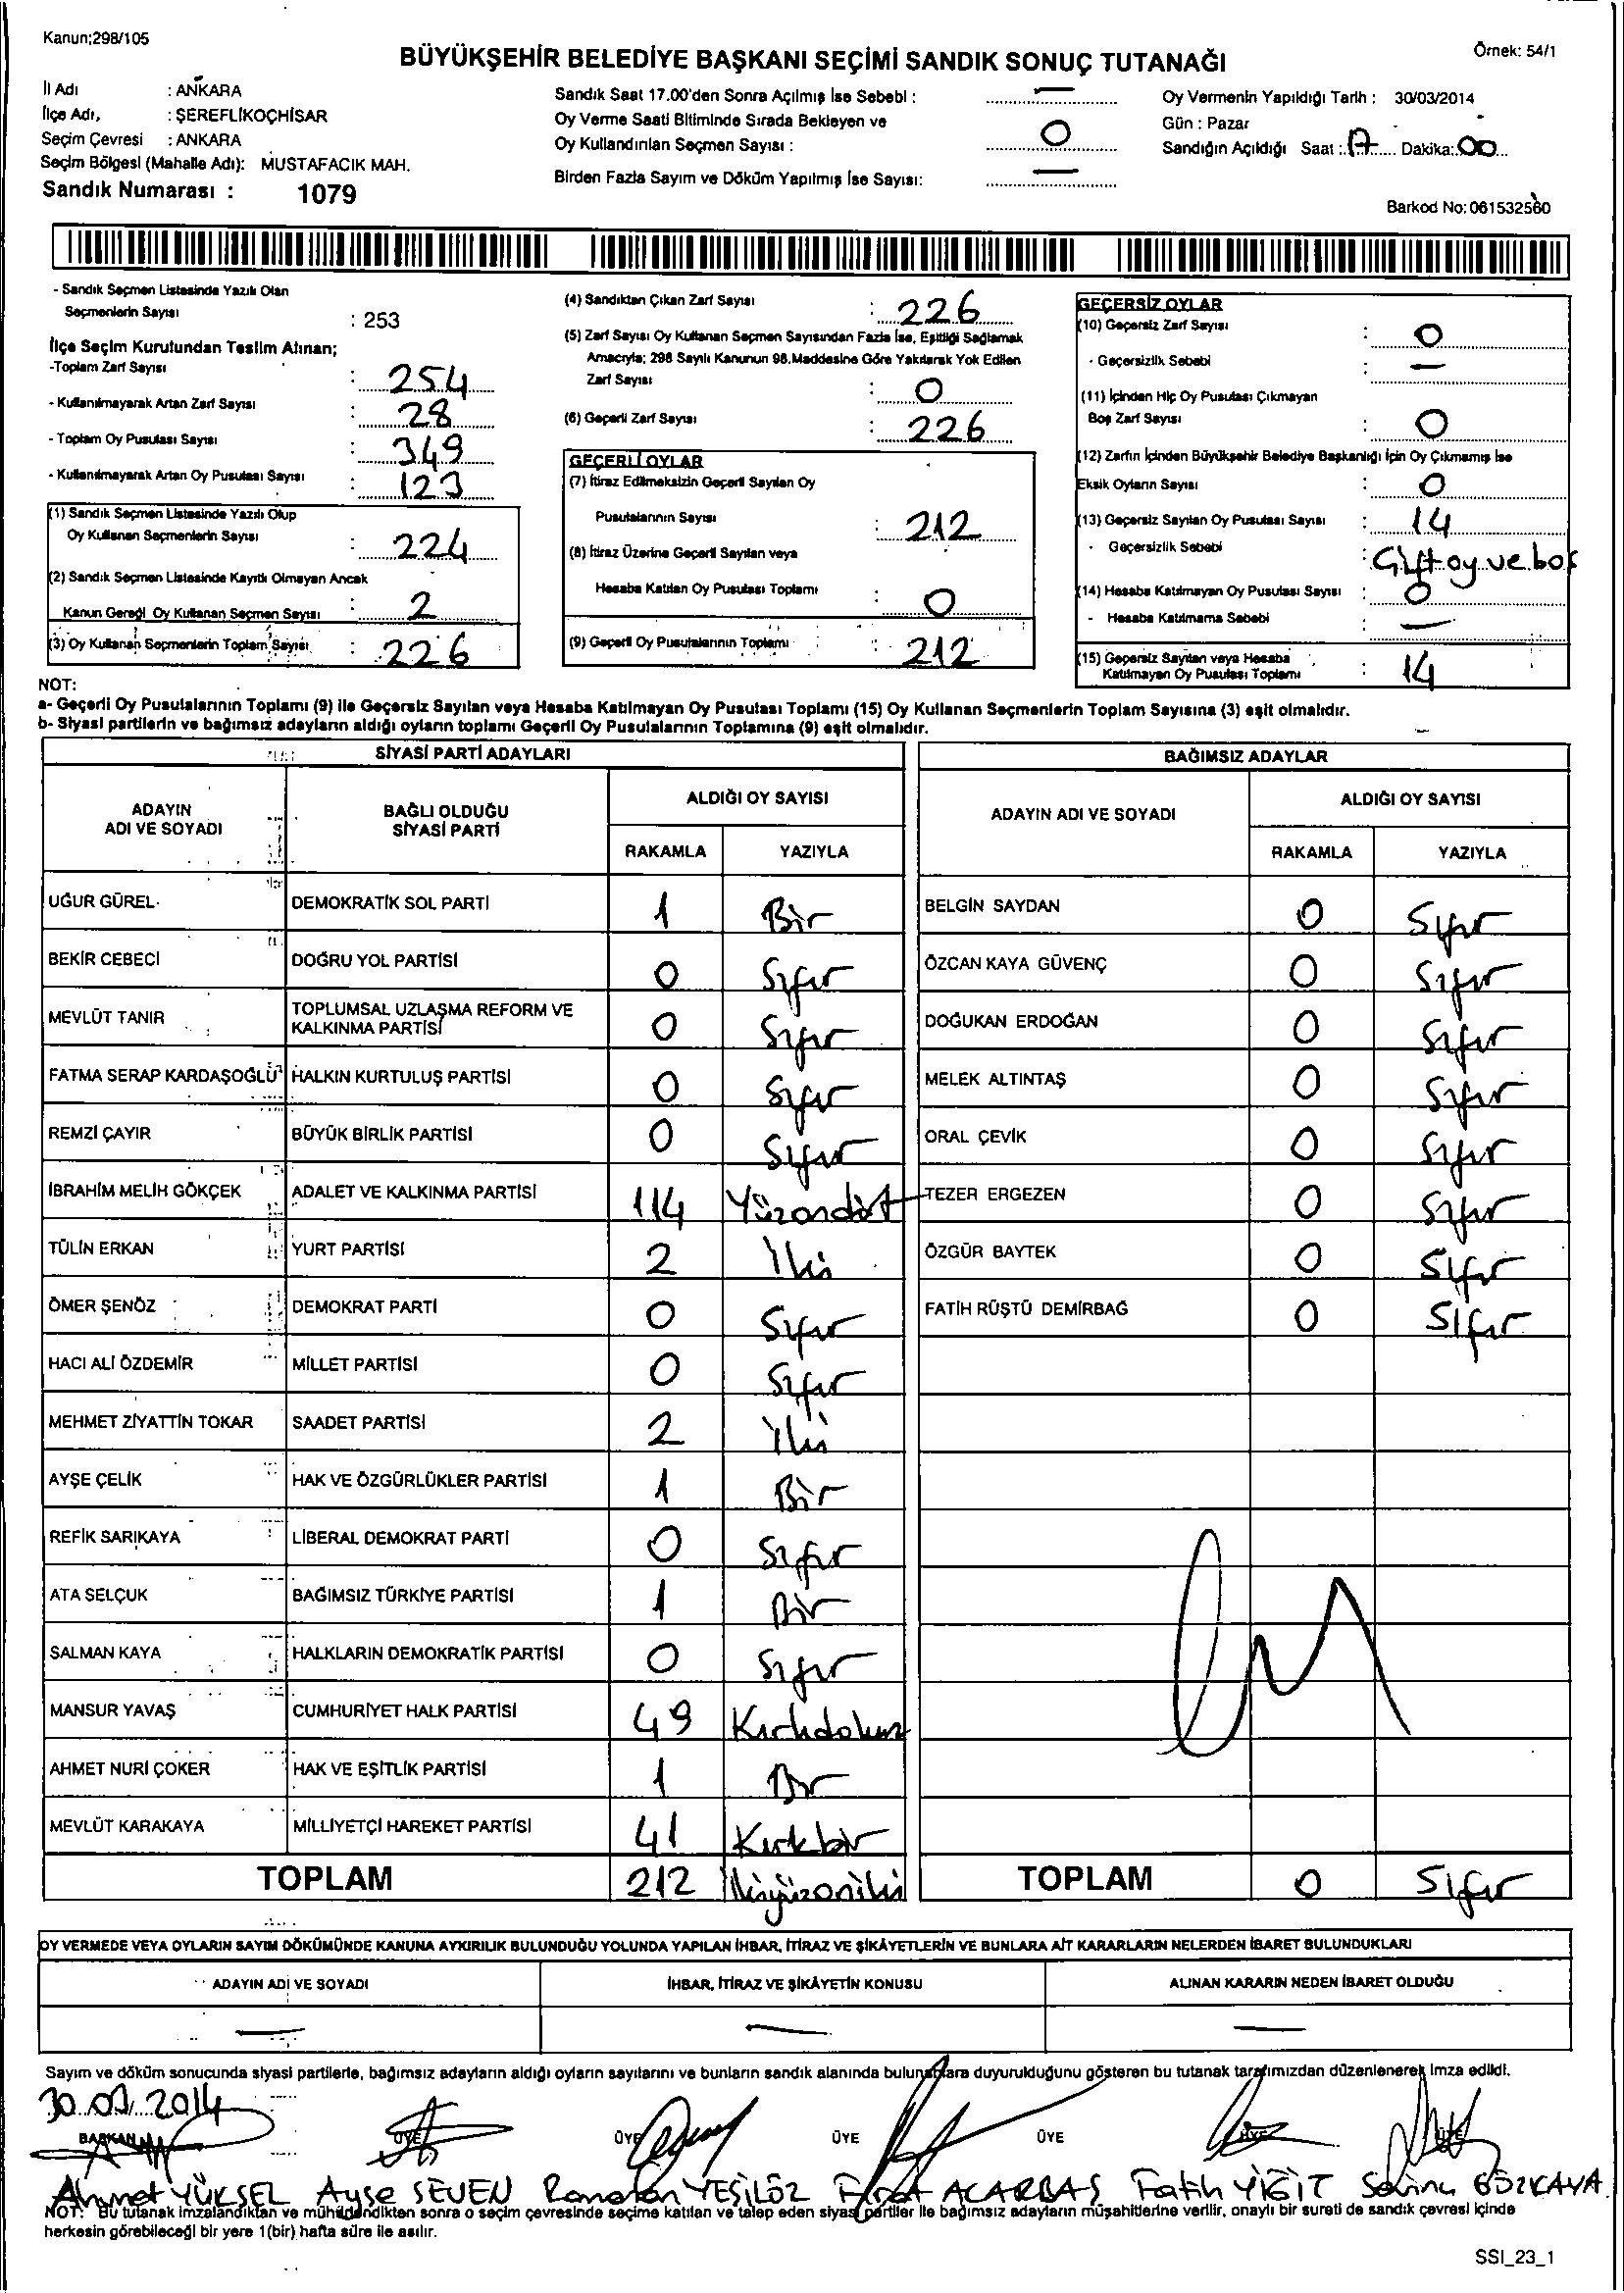 Kanun;298/105
Örnek: 54/1
BÜYÜKŞEHİR BELEDİYE BAŞKANI SEÇİMİ SANDIK SONUÇ TUTANAĞI
İl Adı : ANKARA
İlçe Adı, : ŞEREFLİKOÇHİSAR
Seçim Çevresi : ANKARA
Seçim Bölgesi (Mahalle Adı): MUSTAFACIK MAH.
Sandık Numarası : 1079
Sandık Saat 17.00'den Sonra Açılmış İse Sebebi : —
Oy Verme Saati Bitiminde Sırada Bekleyen ve
Oy Kullandırılan Seçmen Sayısı : 0
Birden Fazla Sayım ve Döküm Yapılmış İse Sayısı: —
Oy Vermenin Yapıldığı Tarih : 30/03/2014
Gün : Pazar
Sandığın Açıldığı Saat : 17 Dakika: 00
Barkod No: 061532560
- Sandık Seçmen Listesinde Yazılı Olan
Seçmenlerin Sayısı : 253
İlçe Seçim Kurulundan Teslim Alınan;
-Toplam Zarf Sayısı : 254
- Kullanılmayarak Artan Zarf Sayısı : 28
- Toplam Oy Pusulası Sayısı : 349
- Kullanılmayarak Artan Oy Pusulası Sayısı : 123
(1) Sandık Seçmen Listesinde Yazılı Olup
Oy Kullanan Seçmenlerin Sayısı : 224
(2) Sandık Seçmen Listesinde Kayıtlı Olmayan Ancak
Kanun Gereği Oy Kullanan Seçmen Sayısı : 2
(3) Oy Kullanan Seçmenlerin Toplam Sayısı : 226
(4) Sandıktan Çıkan Zarf Sayısı : 226
(5) Zarf Sayısı Oy Kullanan Seçmen Sayısından Fazla İse, Eşitliği Sağlamak
Amacıyla; 298 Sayılı Kanunun 98.Maddesine Göre Yakılarak Yok Edilen
Zarf Sayısı : 0
(6) Geçerli Zarf Sayısı : 226
GEÇERLİ OYLAR
(7) İtiraz Edilmeksizin Geçerli Sayılan Oy
Pusulalarının Sayısı : 212
(8) İtiraz Üzerine Geçerli Sayılan veya
Hesaba Katılan Oy Pusulası Toplamı : 0
(9) Geçerli Oy Pusulalarının Toplamı : 212
GEÇERSİZ OYLAR
(10) Geçersiz Zarf Sayısı : 0
- Geçersizlik Sebebi : —
(11) İçinden Hiç Oy Pusulası Çıkmayan
Boş Zarf Sayısı : 0
(12) Zarfın İçinden Büyükşehir Belediye Başkanlığı İçin Oy Çıkmamış İse
Eksik Oyların Sayısı : 0
(13) Geçersiz Sayılan Oy Pusulası Sayısı : 14
- Geçersizlik Sebebi : Çift oy ve boş
(14) Hesaba Katılmayan Oy Pusulası Sayısı : 0
- Hesaba Katılmama Sebebi : —
(15) Geçersiz Sayılan veya Hesaba
Katılmayan Oy Pusulası Toplamı : 14
NOT:
a- Geçerli Oy Pusulalarının Toplamı (9) ile Geçersiz Sayılan veya Hesaba Katılmayan Oy Pusulası Toplamı (15) Oy Kullanan Seçmenlerin Toplam Sayısına (3) eşit olmalıdır.
b- Siyasi partilerin ve bağımsız adayların aldığı oyların toplamı Geçerli Oy Pusulalarının Toplamına (9) eşit olmalıdır.
SİYASİ PARTİ ADAYLARI
ADAYIN ADI VE SOYADI BAĞLI OLDUĞU SİYASİ PARTİ ALDIĞI OY SAYISI
RAKAMLA YAZIYLA
UĞUR GÜREL DEMOKRATİK SOL PARTİ 1 Bir
BEKİR CEBECİ DOĞRU YOL PARTİSİ 0 Sıfır
MEVLÜT TANIR TOPLUMSAL UZLAŞMA REFORM VE KALKINMA PARTİSİ 0 Sıfır
FATMA SERAP KARDAŞOĞLU HALKIN KURTULUŞ PARTİSİ 0 Sıfır
REMZİ ÇAYIR BÜYÜK BİRLİK PARTİSİ 0 Sıfır
İBRAHİM MELİH GÖKÇEK ADALET VE KALKINMA PARTİSİ 114 Yüzondört
TÜLİN ERKAN YURT PARTİSİ 2 İki
ÖMER ŞENÖZ DEMOKRAT PARTİ 0 Sıfır
HACI ALİ ÖZDEMİR MİLLET PARTİSİ 0 Sıfır
MEHMET ZİYATTİN TOKAR SAADET PARTİSİ 2 İki
AYŞE ÇELİK HAK VE ÖZGÜRLÜKLER PARTİSİ 1 Bir
REFİK SARIKAYA LİBERAL DEMOKRAT PARTİ 0 Sıfır
ATA SELÇUK BAĞIMSIZ TÜRKİYE PARTİSİ 1 Bir
SALMAN KAYA HALKLARIN DEMOKRATİK PARTİSİ 0 Sıfır
MANSUR YAVAŞ CUMHURİYET HALK PARTİSİ 49 Kırkdokuz
AHMET NURİ ÇOKER HAK VE EŞİTLİK PARTİSİ 1 Bir
MEVLÜT KARAKAYA MİLLİYETÇİ HAREKET PARTİSİ 41 Kırkbir
TOPLAM 212 İkiyüzoniki
BAĞIMSIZ ADAYLAR
ADAYIN ADI VE SOYADI ALDIĞI OY SAYISI
RAKAMLA YAZIYLA
BELGİN SAYDAN 0 Sıfır
ÖZCAN KAYA GÜVENÇ 0 Sıfır
DOĞUKAN ERDOĞAN 0 Sıfır
MELEK ALTINTAŞ 0 Sıfır
ORAL ÇEVİK 0 Sıfır
TEZER ERGEZEN 0 Sıfır
ÖZGÜR BAYTEK 0 Sıfır
FATİH RÜŞTÜ DEMİRBAĞ 0 Sıfır
TOPLAM 0 Sıfır
OY VERMEDE VEYA OYLARIN SAYIM DÖKÜMÜNDE KANUNA AYKIRILIK BULUNDUĞU YOLUNDA YAPILAN İHBAR, İTİRAZ VE ŞİKÂYETLERİN VE BUNLARA AİT KARARLARIN NELERDEN İBARET BULUNDUKLARI
ADAYIN ADI VE SOYADI İHBAR, İTİRAZ VE ŞİKÂYETİN KONUSU ALINAN KARARIN NEDEN İBARET OLDUĞU
— — —
Sayım ve döküm sonucunda siyasi partilerle, bağımsız adayların aldığı oyların sayılarını ve bunların sandık alanında bulunanlara duyurulduğunu gösteren bu tutanak tarafımızdan düzenlenerek imza edildi.
30.03.2014
BAŞKAN ÜYE ÜYE ÜYE ÜYE ÜYE ÜYE
Ahmet YÜKSEL Ayşe SEVEN Ramazan YEŞİLÖZ Fırat ACARBAŞ Fatih YİĞİT GÖZKAYA
NOT: Bu tutanak imzalandıktan ve mühürlendikten sonra o seçim çevresinde seçime katılan ve talep eden siyasi partiler ile bağımsız adayların müşahitlerine verilir, onaylı bir sureti de sandık çevresi içinde
herkesin görebileceği bir yere 1(bir) hafta süre ile asılır.
SSI_23_1